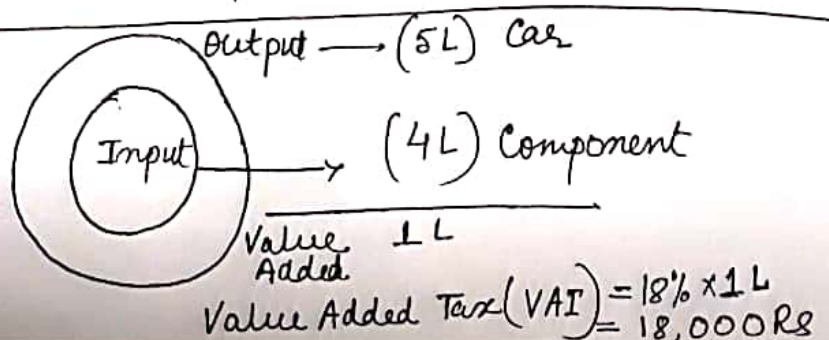 Output → (5L) Car
Input → (4L) Component
Value Added 1L
Value Added Tax (VAI) = 18% × 1L
= 18,000 RS